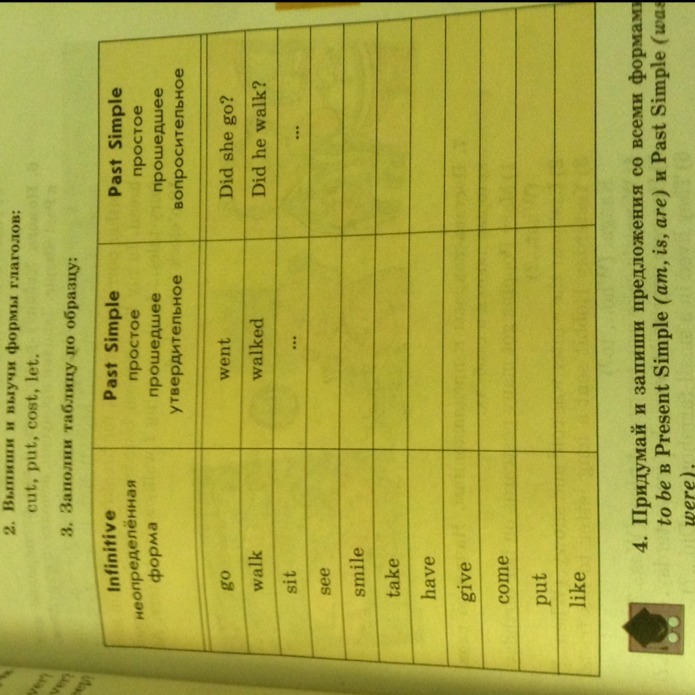 2. Выпиши и выучи формы глаголов:
cut, put, cost, let.
3. Заполни таблицу по образцу:
Infinitive
неопределённая
форма
Past Simple
простое
прошедшее
утвердительное
Past Simple
простое
прошедшее
вопросительное
go went Did she go?
walk walked Did he walk?
sit ... ...
see
smile
take
have
give
come
put
like
4. Придумай и запиши предложения со всеми формами
to be в Present Simple (am, is, are) и Past Simple (was
were).